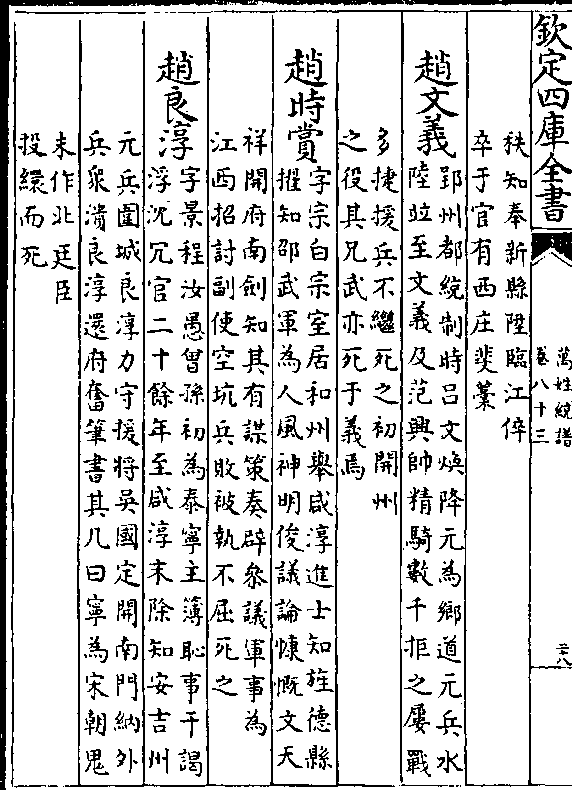 欽定四庫全書
萬姓統譜
卷八十三
秩知奉新縣陞臨江倅
卒于官有西庄斐藁
趙文義
郢州都統制時呂文煥降元為鄉道元兵水
陸竝至文義及范興帥精騎數千拒之屢戰
多捷援兵不繼死之初開州
之役其兄武亦死于義焉
趙時賞
字宗白宗室居和州舉咸淳進士知旌德縣
擢知邵武軍為人風神明俊議論慷慨文天
祥開府南劍知其有謀策奏辟參議軍事為
江西招討副使空坑兵敗被執不屈死之
趙良淳
字景程汝愚曾孫初為泰寧主簿恥事干謁
浮沉冗官二十餘年至咸淳末除知安吉州
元兵圍城良淳力守援將吳國定開南門納外
兵衆潰良淳還府奮筆書其几曰寧為宋朝鬼
末作北廷臣
投繯而死